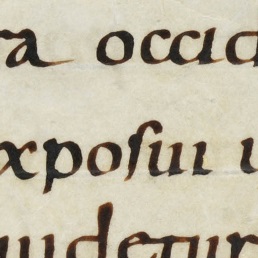 ra occid
xposui u
uidetur